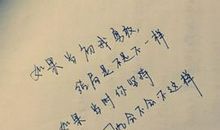 如果当初我勇敢，
结局是不是不一样
如果当时你坚持
回忆会不会不这样